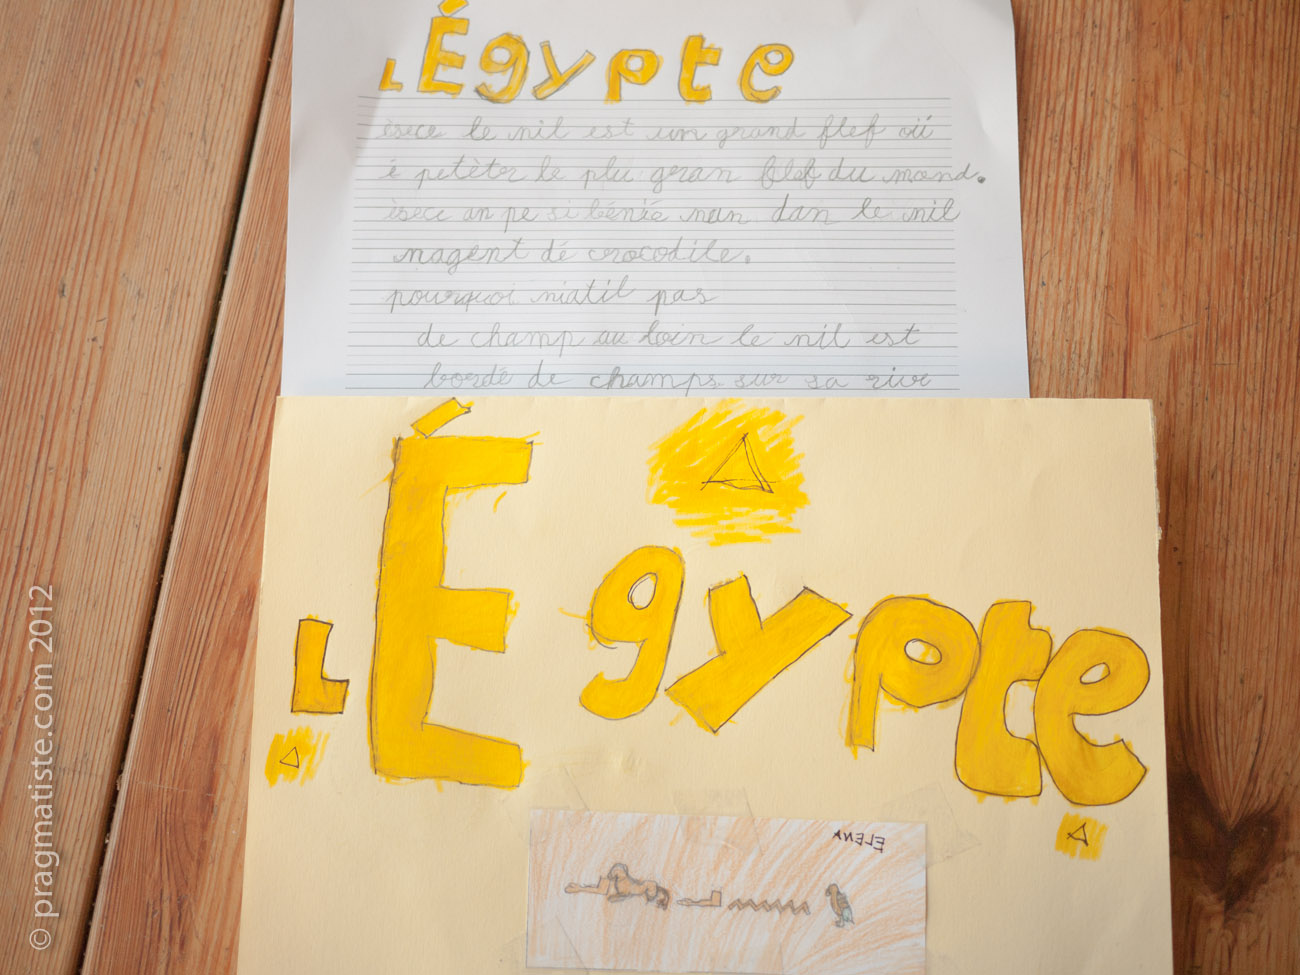 L Égypte
èsece le nil est un grand flef où
é petèter le plu gran flef du mond.
èsece an pe si bénié nan dan le nil
nagent dé crocodile.
pourquoi niatil pas
de champ au loin le nil est
bordé de champs sur sa rive
L Égypte
ELENA
© pragmatiste.com 2012